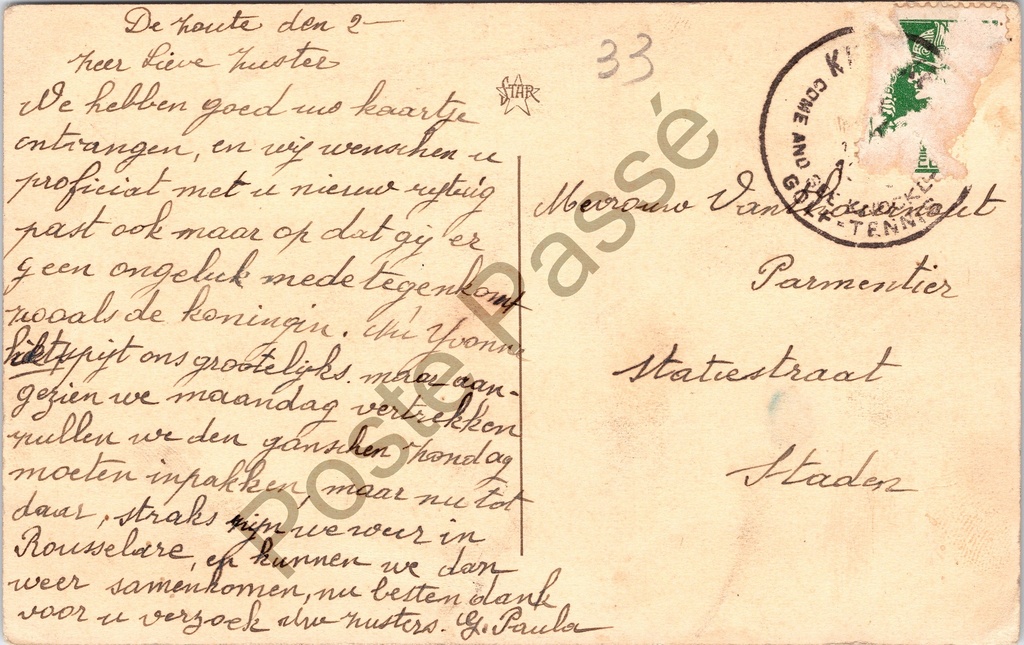 De Zoute den 2-
Zeer Lieve Zuster
We hebben goed uw kaartje
ontvangen, en wij wenschen u
proficiat met u nieuw rijtuig
past ook maar op dat gij er
geen ongeluk mede tegenkomt
zooals de koningin. Nu Yvonne
het spijt ons grootelijks. maar aan-
gezien we maandag vertrekken
zullen we den ganschen Zondag
moeten inpakken, maar nu tot
daar, straks zijn we weer in
Rousselare, en kunnen we dan
weer samenkomen, nu besten dank
voor u verzoek Uw zusters. G. Paula
STAR
33
COME AND SEE KNOCKE
GOLF-TENNIS
Mevrouw
Parmentier
Statiestraat
Staden
Poste Passé